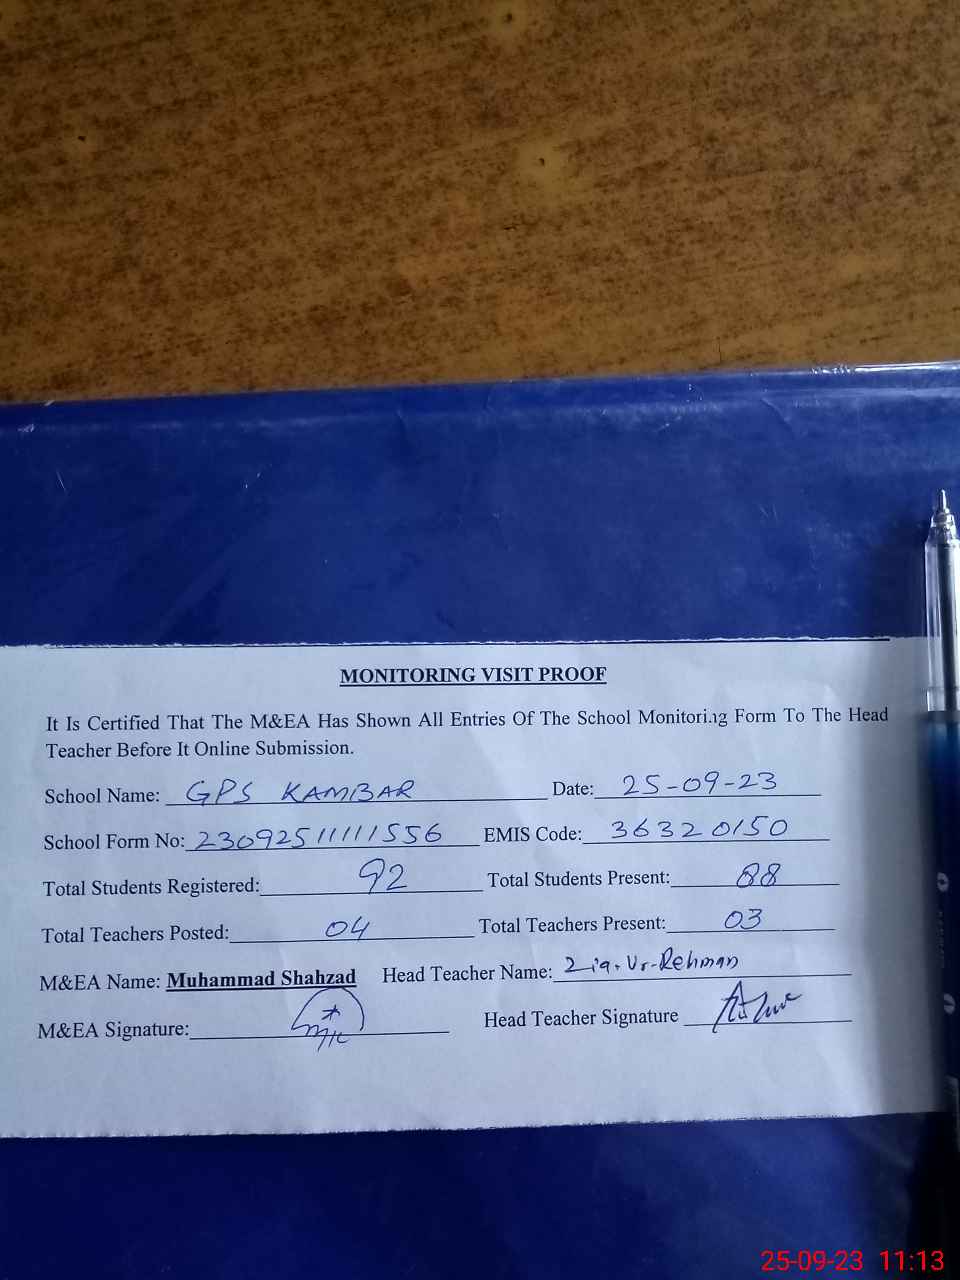 MONITORING VISIT PROOF
It Is Certified That The M&EA Has Shown All Entries Of The School Monitoring Form To The Head
Teacher Before It Online Submission.
School Name: GPS KAMBAR Date: 25-09-23
School Form No: 23092511111556 EMIS Code: 36320150
Total Students Registered: 92 Total Students Present: 88
Total Teachers Posted: 04 Total Teachers Present: 03
M&EA Name: Muhammad Shahzad Head Teacher Name: Zia-Ur-Rehman
M&EA Signature: Head Teacher Signature
25-09-23 11:13